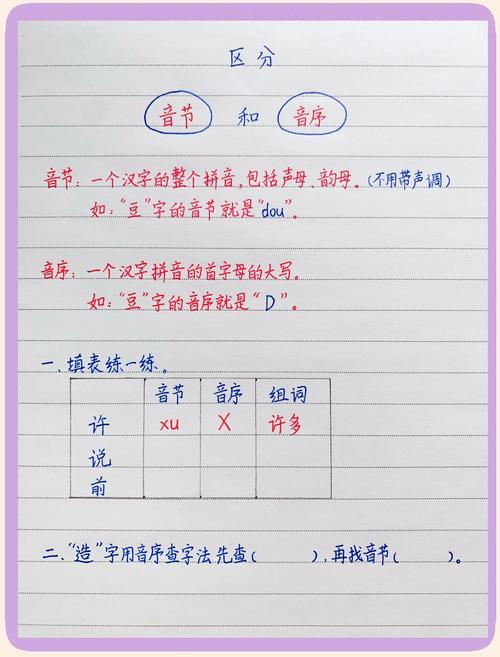 区分
音节 和 音序
音节：一个汉字的整个拼音，包括声母、韵母。（不用带声调）
如：“豆”字的音节就是“dou”。
音序：一个汉字拼音的首字母的大写。
如：“豆”字的音序就是“D”。
一、填表练一练。
音节 音序 组词
许 xu X 许多
说
前
二、“造”字用音序查字法先查（ ），再找音节（ ）。